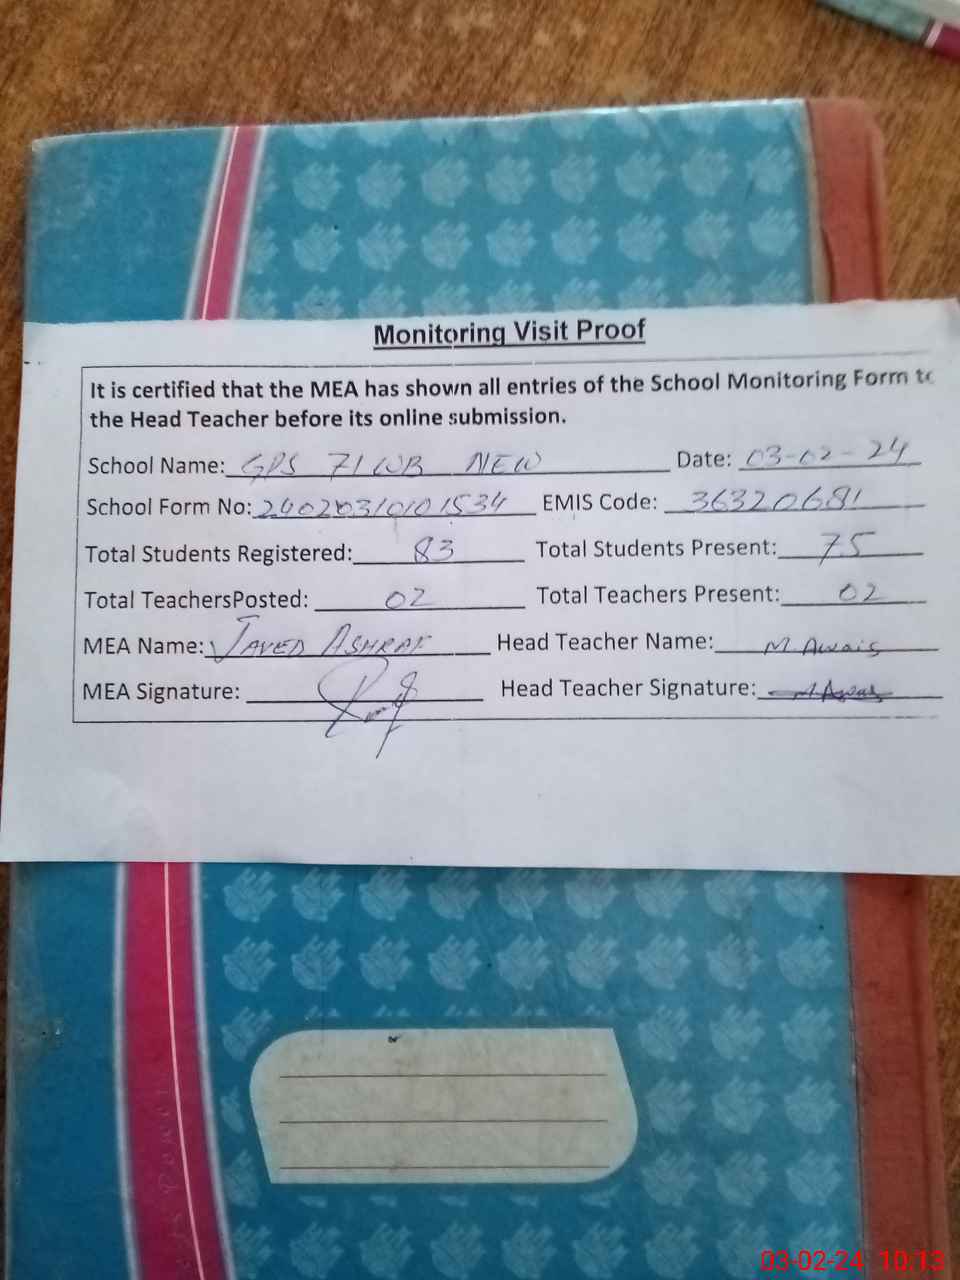 Monitoring Visit Proof
It is certified that the MEA has shown all entries of the School Monitoring Form to
the Head Teacher before its online submission.
School Name: GPS 71 WB NEW Date: 03-02-24
School Form No: 24020310101534 EMIS Code: 36320681
Total Students Registered: 83 Total Students Present: 75
Total TeachersPosted: 02 Total Teachers Present: 02
MEA Name: JAVED ASHRAF Head Teacher Name: M. Awais
MEA Signature: Head Teacher Signature: M Awais
03-02-24 10:13